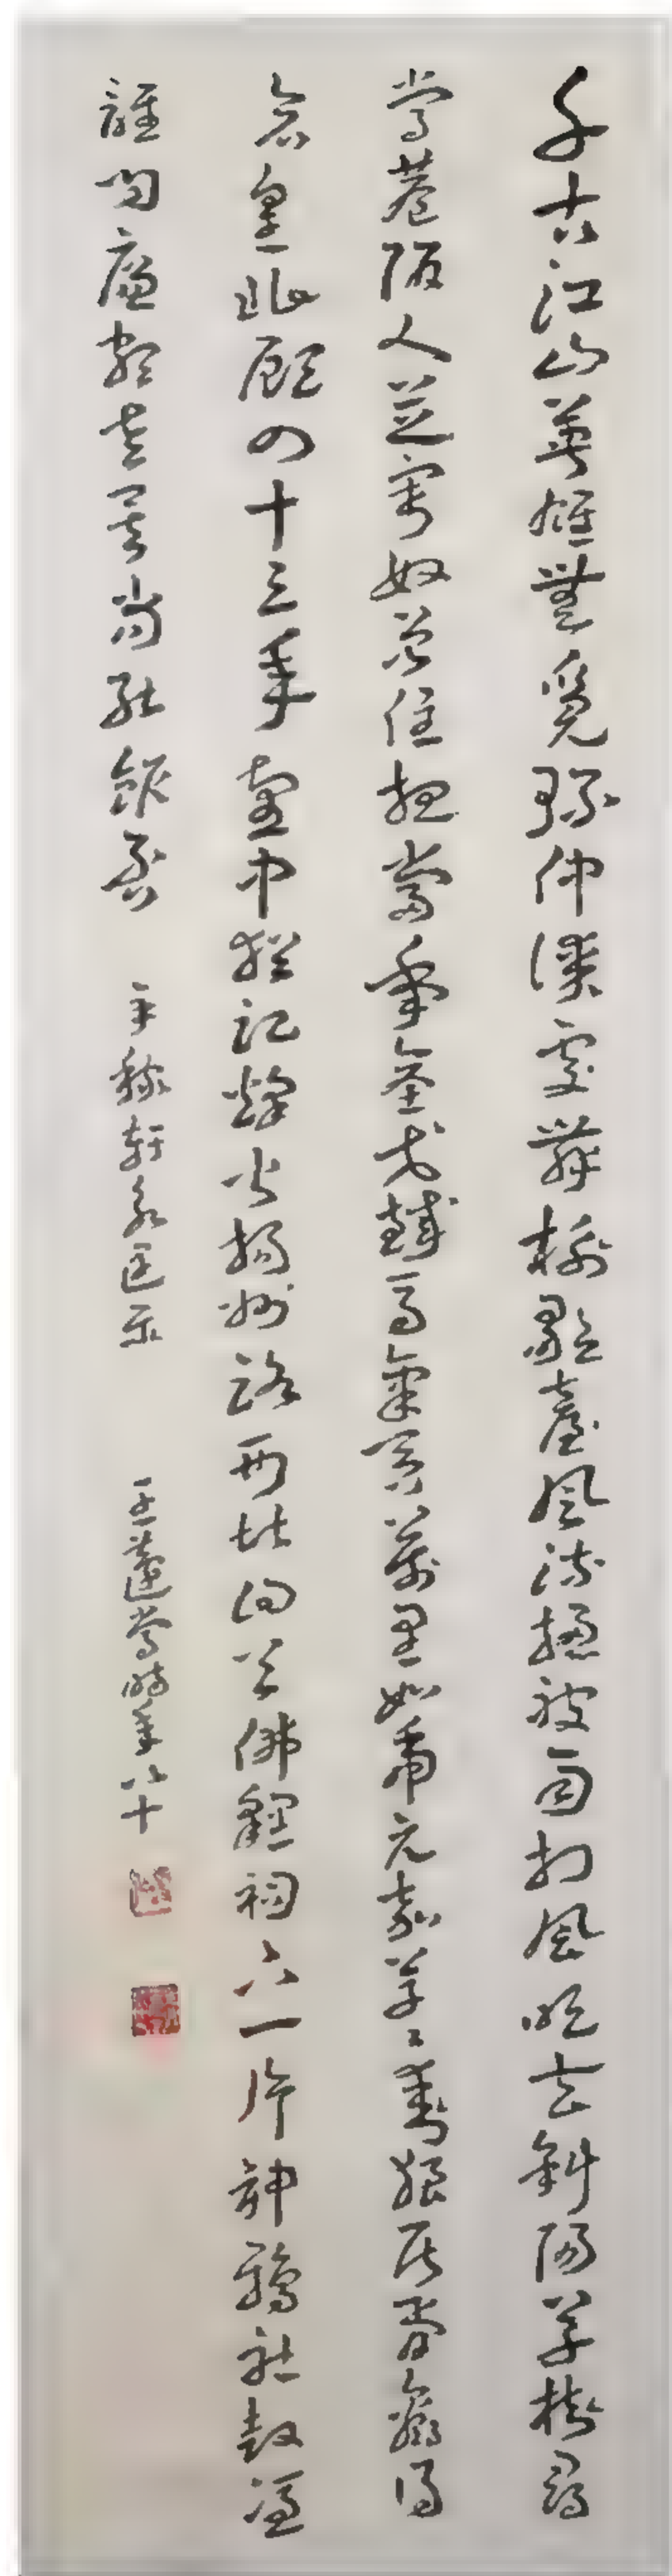 千古江山英雄無覓孫仲謀處舞榭歌臺風流總被雨打風吹去斜陽草樹尋
常巷陌人道寄奴曾住想當年金戈鐵馬氣吞萬里如虎元嘉草草封狼居胥贏得
倉皇北顧四十三年望中猶記烽火揚州路可堪回首佛貍祠下一片神鴉社鼓憑
誰問廉頗老矣尚能飯否 辛稼軒永遇樂 王蘧常時年八十